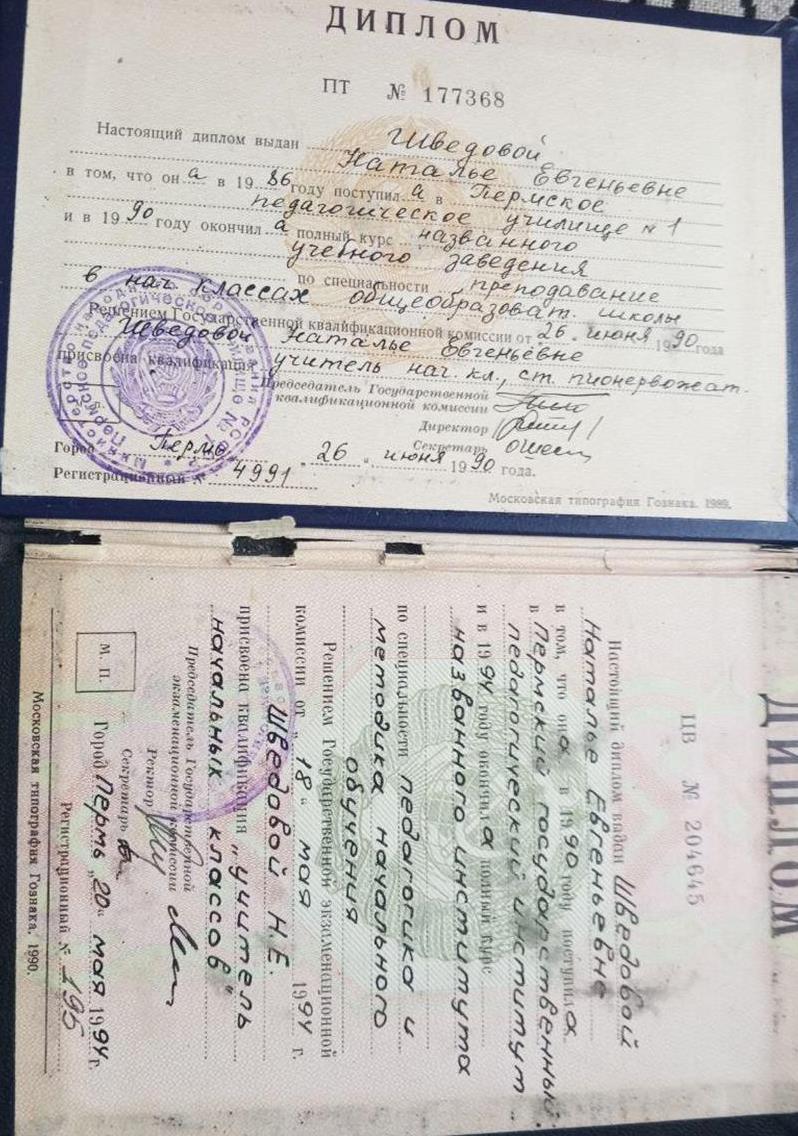 ДИПЛОМ
ПТ № 177368
Настоящий диплом выдан Шведовой
Наталье Евгеньевне
в том, что он а в 1986 году поступил а в Пермское
педагогическое училище № 1
и в 1990 году окончил а полный курс названного
учебного заведения
по специальности преподавание
в нач. классах общеобразоват. школы
Решением Государственной квалификационной комиссии от 26 июня 1990 года
Шведовой Наталье Евгеньевне
присвоена квалификация учитель нач. кл., ст. пионервожат.
Председатель Государственной
квалификационной комиссии
Директор
Секретарь
Город Пермь 26 июня 1990 года.
Регистрационный № 4991
Московская типография Гознака. 1989.
ДИПЛОМ
ЦВ № 204645
Настоящий диплом выдан Шведовой
Наталье Евгеньевне
в том, что она в 1990 году поступила
в Пермский государственный
педагогический институт
и в 1994 году окончила полный курс
названного института
по специальности педагогика и
методика начального
обучения
Решением Государственной экзаменационной
комиссии от "18" мая 1994 г.
Шведовой Н.Е.
присвоена квалификация "учитель
начальных классов"
Председатель Государственной
экзаменационной комиссии
Ректор
Секретарь
М. П.
Город Пермь "20" мая 1994 г.
Регистрационный № 195
Московская типография Гознака. 1990.